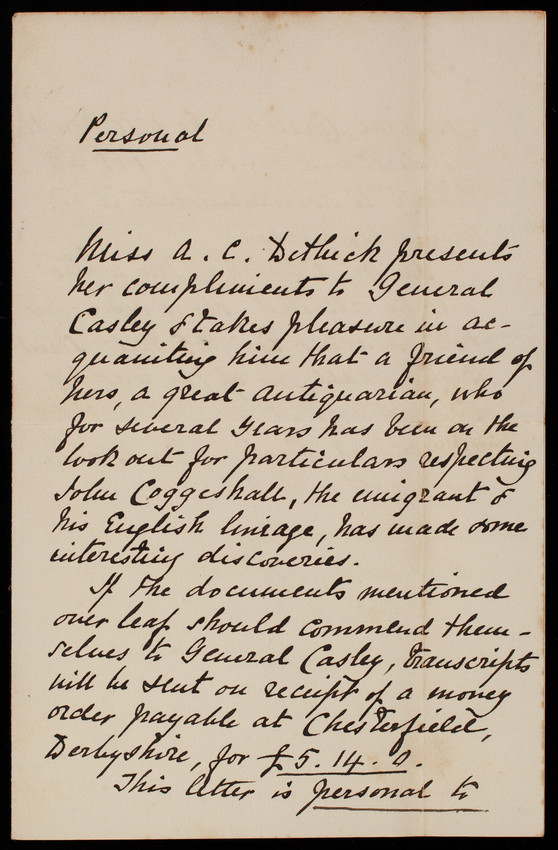 Personal
Miss A. C. Dethick presents
her compliments to General
Casley & takes pleasure in ac-
quainting him that a friend of
hers, a great antiquarian, who
for several years has been on the
look out for particulars respecting
John Coggeshall, the emigrant &
his English lineage, has made some
interesting discoveries.
If the documents mentioned
over leaf should commend them-
selves to General Casley, transcripts
will be sent on receipt of a money
order payable at Chesterfield,
Derbyshire, for £5.14.0.
This letter is personal to